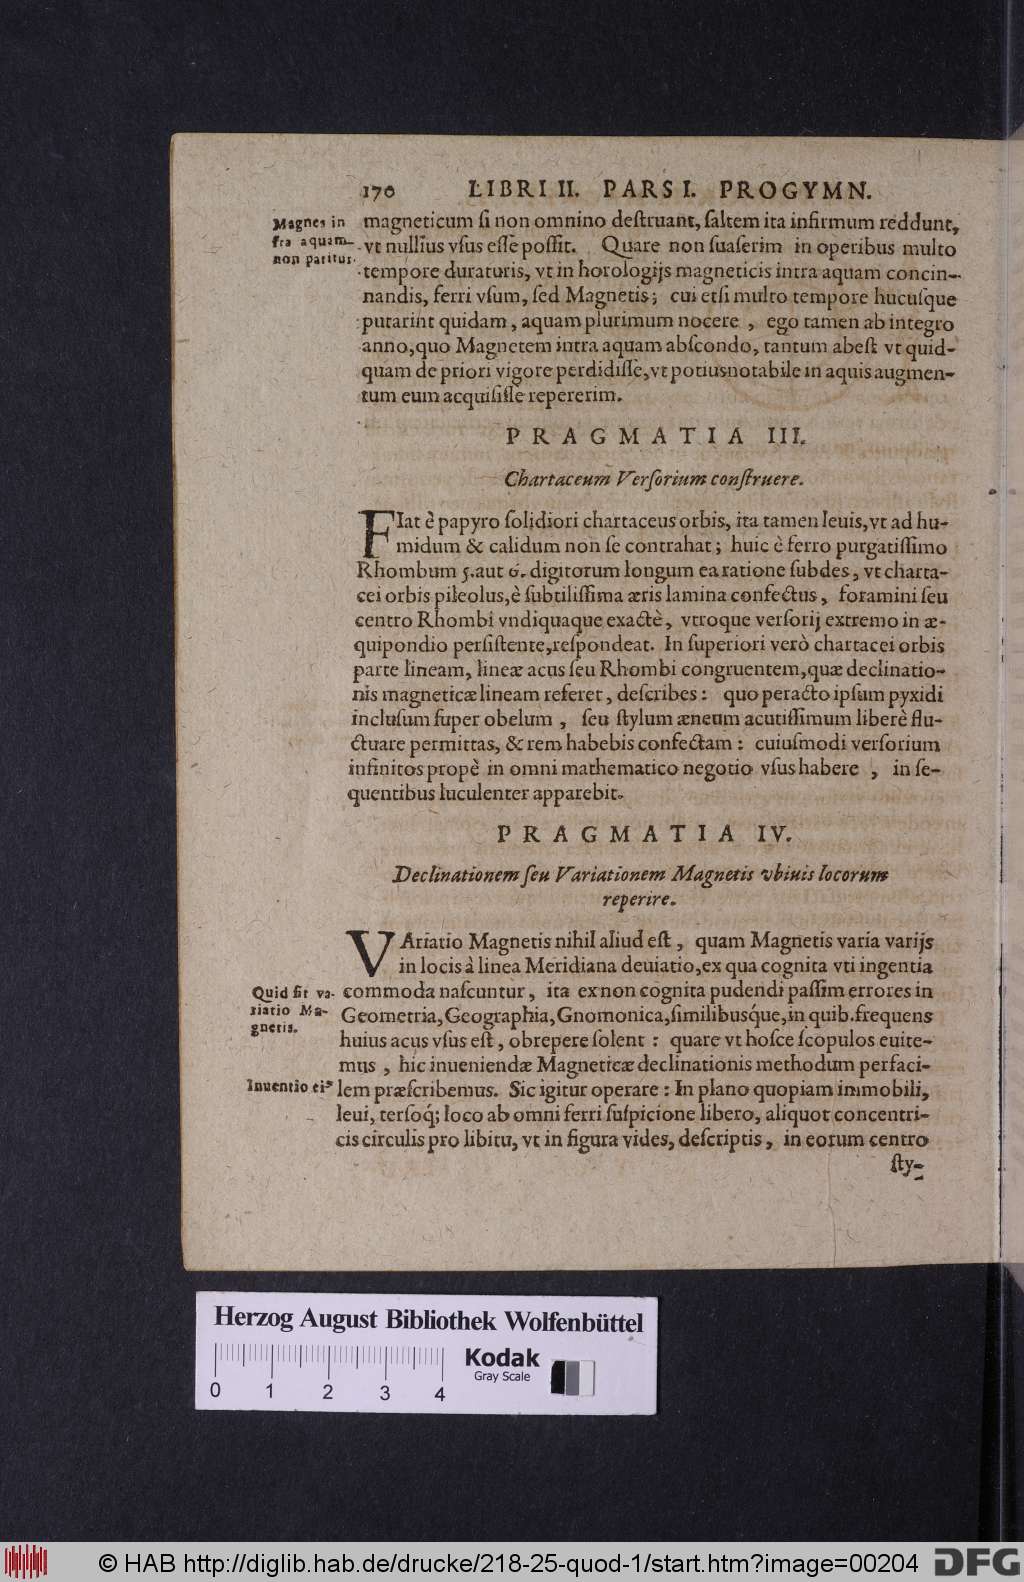 170 LIBRI II. PARS I. PROGYMN.
Magnes in
fra aquam
non patitur.
magneticum ſi non omnino deſtruant, ſaltem ita infirmum reddunt,
vt nullius vſus eſſe poſſit. Quare non ſuaſerim in operibus multo
tempore duraturis, vt in horologijs magneticis intra aquam concin-
nandis, ferri vſum, ſed Magnetis; cui etſi multo tempore hucuſque
putarint quidam, aquam plurimum nocere, ego tamen ab integro
anno, quo Magnetem intra aquam abſcondo, tantum abeſt vt quid-
quam de priori vigore perdidiſſe, vt potius notabile in aquis augmen-
tum eum acquiſiſſe repererim.
PRAGMATIA III.
Chartaceum Verſorium conſtruere.
FIat è papyro ſolidiori chartaceus orbis, ita tamen leuis, vt ad hu-
midum & calidum non ſe contrahat; huic è ferro purgatiſſimo
Rhombum 5. aut 6. digitorum longum ea ratione ſubdes, vt charta-
cei orbis pileolus, è ſubtiliſſima æris lamina confectus, foramini ſeu
centro Rhombi vndiquaque exactè, vtroque verſorij extremo in æ-
quipondio perſiſtente, reſpondeat. In ſuperiori verò chartacei orbis
parte lineam, lineæ acus ſeu Rhombi congruentem, quæ declinatio-
nis magneticæ lineam referet, deſcribes: quo peracto ipſum pyxidi
incluſum ſuper obelum, ſeu ſtylum æneum acutiſſimum liberè flu-
ctuare permittas, & rem habebis confectam: cuiuſmodi verſorium
infinitos propè in omni mathematico negotio vſus habere, in ſe-
quentibus luculenter apparebit.
PRAGMATIA IV.
Declinationem ſeu Variationem Magnetis vbiuis locorum
reperire.
VAriatio Magnetis nihil aliud eſt, quam Magnetis varia varijs
in locis à linea Meridiana deuiatio, ex qua cognita vti ingentia
Quid ſit va-
riatio Ma-
gnetis.
commoda naſcuntur, ita ex non cognita pudendi paſſim errores in
Geometria, Geographia, Gnomonica, ſimilibusq́ue, in quib. frequens
huius acus vſus eſt, obrepere ſolent: quare vt hoſce ſcopulos euite-
mus, hic inueniendæ Magneticæ declinationis methodum perfaci-
Inuentio eiꝰ
lem præſcribemus. Sic igitur operare: In plano quopiam immobili,
leui, terſoq́; loco ab omni ferri ſuſpicione libero, aliquot concentri-
cis circulis pro libitu, vt in figura vides, deſcriptis, in eorum centro
ſty-
Herzog August Bibliothek Wolfenbüttel
Kodak
Gray Scale
0 1 2 3 4
© HAB http://diglib.hab.de/drucke/218-25-quod-1/start.htm?image=00204
DFG